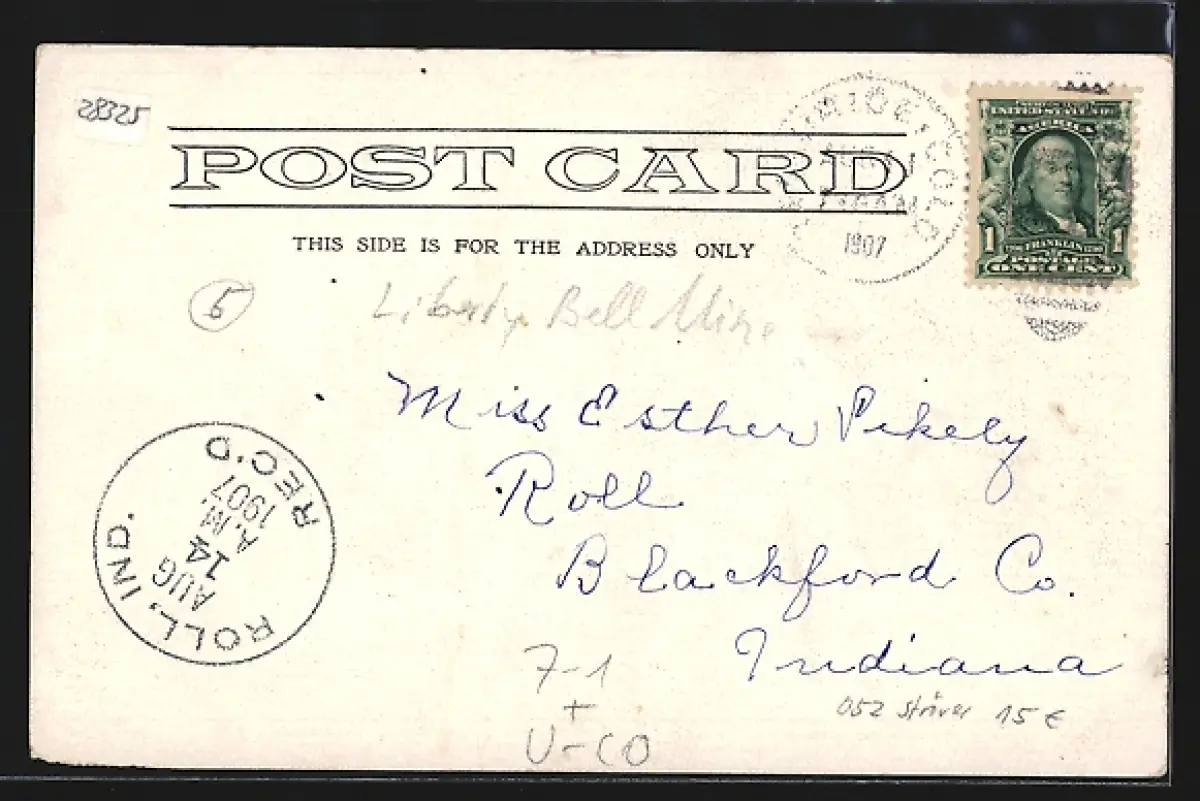 28325
POST CARD
THIS SIDE IS FOR THE ADDRESS ONLY
COLO
1907
UNITED STATES OF
AMERICA
1 FRANKLIN 1
POSTAGE
ONE CENT
5
Liberty Bell Mine
Miss Esther Pikely
Roll
Blackford Co.
Indiana
ROLL, IND.
REC'D
AUG
14
A.M.
1907
7-1
+
U-CO
052 15 €